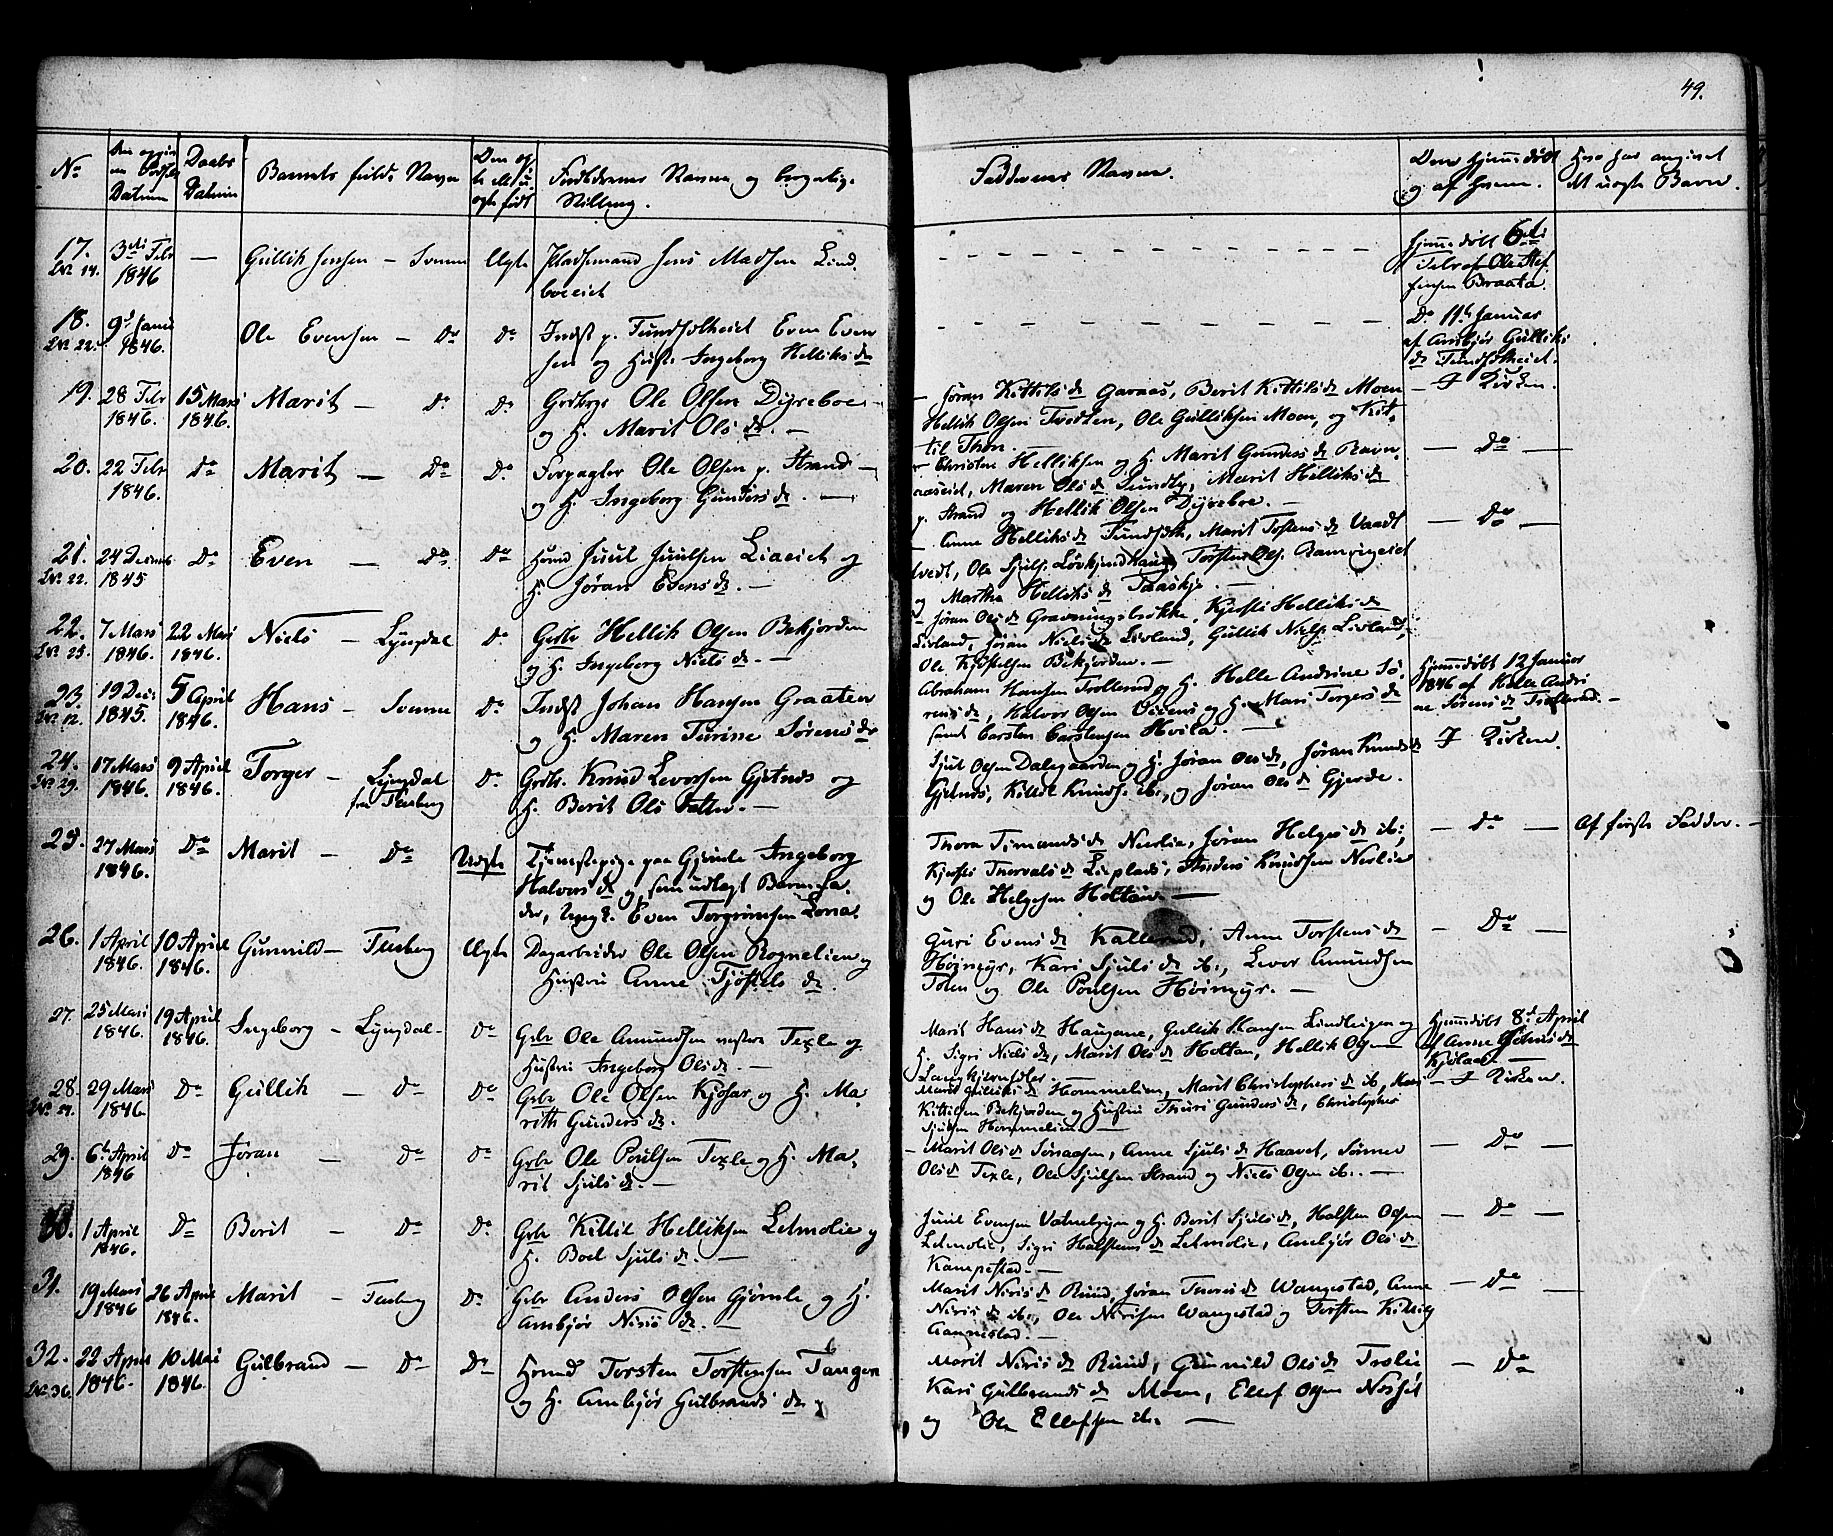 49.
No
Datum
Daabs
Datum
Barnets fulde Navn
Den
Forældrenes Navne og borgerlige
Stilling.
Faddernes Navne.
Om hjemmedøbt
og af hvem.
Hvo har angivet
det uægte Barn.
17.
3die Febr
1846
—
Gullik Jensen — Svenne
Ægte
Pladsemand Jens Madsen Lind
boeeiet
hjemmedøbt 6te
Febr af Ole Stef
fensen Braata.
18.
9d Janu
1846.
Ole Evensen — Do
Do
Indst p. Fundsolheiet Even Even
sen og Hustr Ingeborg Helliksdr
Do 11te Januar
af Ambjør Gulliks
dr Fundsolheiet.
19.
28 Febr
1846.
15 Mars
1846.
Marit —
Do
Do
Grdbrgr Ole Olsen Dyreboe —
og H. Marit Olsdr. —
— Jøran Kittilsdr Gavaas, Berit Kittilsdr Moen
Hellik Olsen Tvedten, Ole Gulliksen Moen, og Kit-
til Thon. —
— I Kirken.
20.
22 Febr
1846.
Do
Marit —
Do
Do
Forpagter Ole Olsen p. Strand —
og H. Ingeborg Gundersdr. —
— Christen Helliksen og H. Marit Gundersdr Ravn-
aaseiet, Maren Olsdr Sundby, Marit Helliksdr
p. Strand og Hellik Olsen Dyreboe. —
— Do —
21.
24 Decemb
1845
Do
Even —
Do
Do
Huusmd Juul Juulsen Liaeiet og
H. Jøran Evensdr. —
— Anne Helliksdr Fundsolh, Marit Torstensdr Vaadt
tvedt, Ole Sjuls. Løvkjendhaug, Torsten Ols. Ramvigeiet
og Martha Helliksdr Taaskje. —
— Do —
22.
7 Mars
1846.
22 Mars
1846.
Niels — Lyngdal
Do
Grbr Hellik Olsen Bekjorden
og H. Ingeborg Nielsdr. —
Jøran Olsdr Gravningsbrække, Kjersti Helliksdr
Livland, Jøran Nielsdr Livland, Gullik Niels. Livland,
Ole Kjøstelsen Bekjorden. —
23.
19 Decbr
1845.
5 April
1846.
Hans — Svenne
Do
Indst Johan Hansen Graaten
og H. Maren Turine Sørensdr
Abraham Hansen Trollerud og H. Helle Andrine Sø-
rensdr, Halvor Olsen Vicens og H. Mari Torgersdr
samt Carsten Carstensen Hvila. —
hjemmedøbt 12 Januar
1846 af Helle Andri
ne Sørensdr Trollerud. —
24.
17 Mars
1846.
9 April
1846.
Torger — Lyngdal
fra Flesberg
Do
Grdbr. Knud Levorsen Gjetnes og
H. Berit Ols Datter. —
Sjul Olsen Dalsgaarden og H. Jøran Olsdr, Jøran Knudsdr
Gjetnes, Kittil Knuds. ib., og Jøran Olsdr Gjerde.
I Kirken.
25.
27 Mars
1846.
Do
Marit —
Do
Uægte
Tjenestepige paa Gjemle Ingeborg
Halvorsdr og som udlagt Barnefa-
der, Ungk. Even Torgrimsen Lona.
Thora Timandsdr Nerlia, Jøran Helgesdr ib.,
Kjersti Thorvalsdr Lieplads, Anders Knudsen Nerlia
og Ole Helgesen Holtan. —
— Do —
Af første Fadder. —
26.
1 April
1846.
10 April
1846.
Gunnild — Flesberg
Ægte
Dagarbeider Ole Olsen Rognelien og
Hustru Anne Tjøstelsdr.
Guri Evensdr Kallerud, Anne Torstensdr
Høimyr, Kari Sjulsdr ib., Levor Amundsen
Toen og Ole Poulsen Høimyr. —
— Do —
27.
25 Mars
1846.
19 April
1846.
Ingeborg — Lyngdal —
Do
Grbr Ole Amundsen nestre Texle og
Hustru Ingeborg Olsdr. —
Marit Hansdr Haugane, Gullik Hansen Lindteigen og
H. Sigri Nielsdr, Marit Olsdr Holtan, Hellik Olsen
hjemmedøbt 8d April
af Anne
28.
29 Mars
1846.
Do
Gullik —
Do
Do
Grbr Ole Olsen Kjosar og H. Ma-
rith Gundersdr.
Marit Gulliksdr Hommelien, Marit Christophersdr ib.,
Kittilsen Bekjorden og Hustru Thuri Gundersdr, Christopher
Sjulsen Hommelien. —
— I Kirken. —
29.
6te April
1846
Do
Jøran —
Do
Do
Grbr Ole Poulsen Texle og H. Ma-
rit Sjulsdr. —
— Marit Olsdr Sønaasen, Anne Sjulsdr Haavet, Sønnev
Olsdr Texle, Ole Sjulsen Strand og Niels Olsen ib. —
— Do —
30.
1 April
1846.
Do
Berit —
Do
Do
Grbr Kittil Helliksen Letmolie og
H. Boel Sjulsdr. —
Juul Evensen Vatnebryn og H. Berit Sjulsdr, Halsten Olsen
Letmolie, Sigri Halstensdr Letmolie, Ambjør Olsdr
Kampestad. —
— Do —
31.
19 Mars
1846
26 April
1846.
Marit — Flesberg
Do
Grbr Anders Olsen Gjømle og H.
Ambjør Nirisdr. —
Marit Nirisdr Ruud, Jøran Thorsdr Wangestad, Anne
Nirisdr ib., Ole Nirisen Wangestad og Torsten Kittilsen
Aannestad. —
— Do —
32.
22 April
1846.
10 Mai
1846.
Gulbrand — Do
Do
Hmd Torsten Torstensen Tangen
og H. Ambjør Gulbrandsdr.
Marit Nirisdr Ruud, Gunnild Olsdr Trolie
Kari Gulbrandsdr Moen, Ellef Olsen
og Ole Ellefsen ib. —
— Do